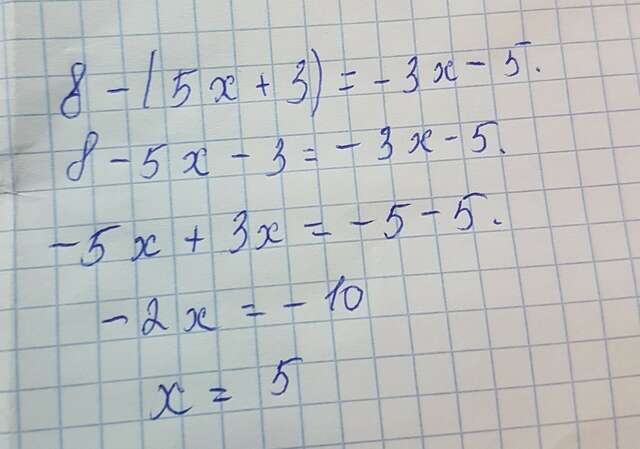 8 - (5x + 3) = - 3x - 5.
8 - 5x - 3 = - 3x - 5.
- 5x + 3x = - 5 - 5.
- 2x = - 10
x = 5